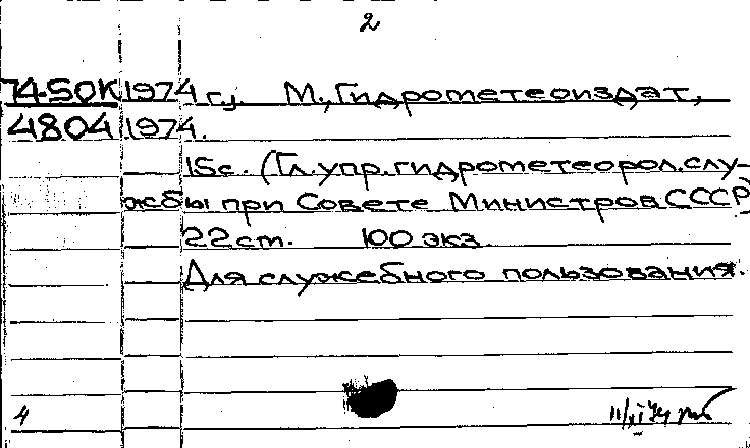 2
74-50К 1974 г.). М., Гидрометеоиздат,
4804 1974.
15с. (Гл. упр. гидрометеорол. слу-
жбы при Совете Министров СССР)
22 ст. 100 экз.
Для служебного пользования.
4 11/XI 74